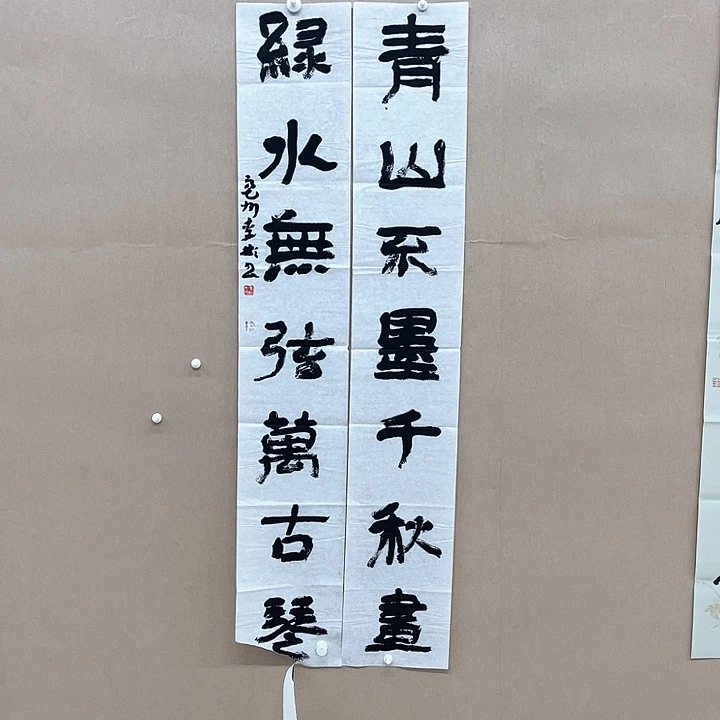 青山不墨千秋畫
緑水無弦萬古琴
亳州